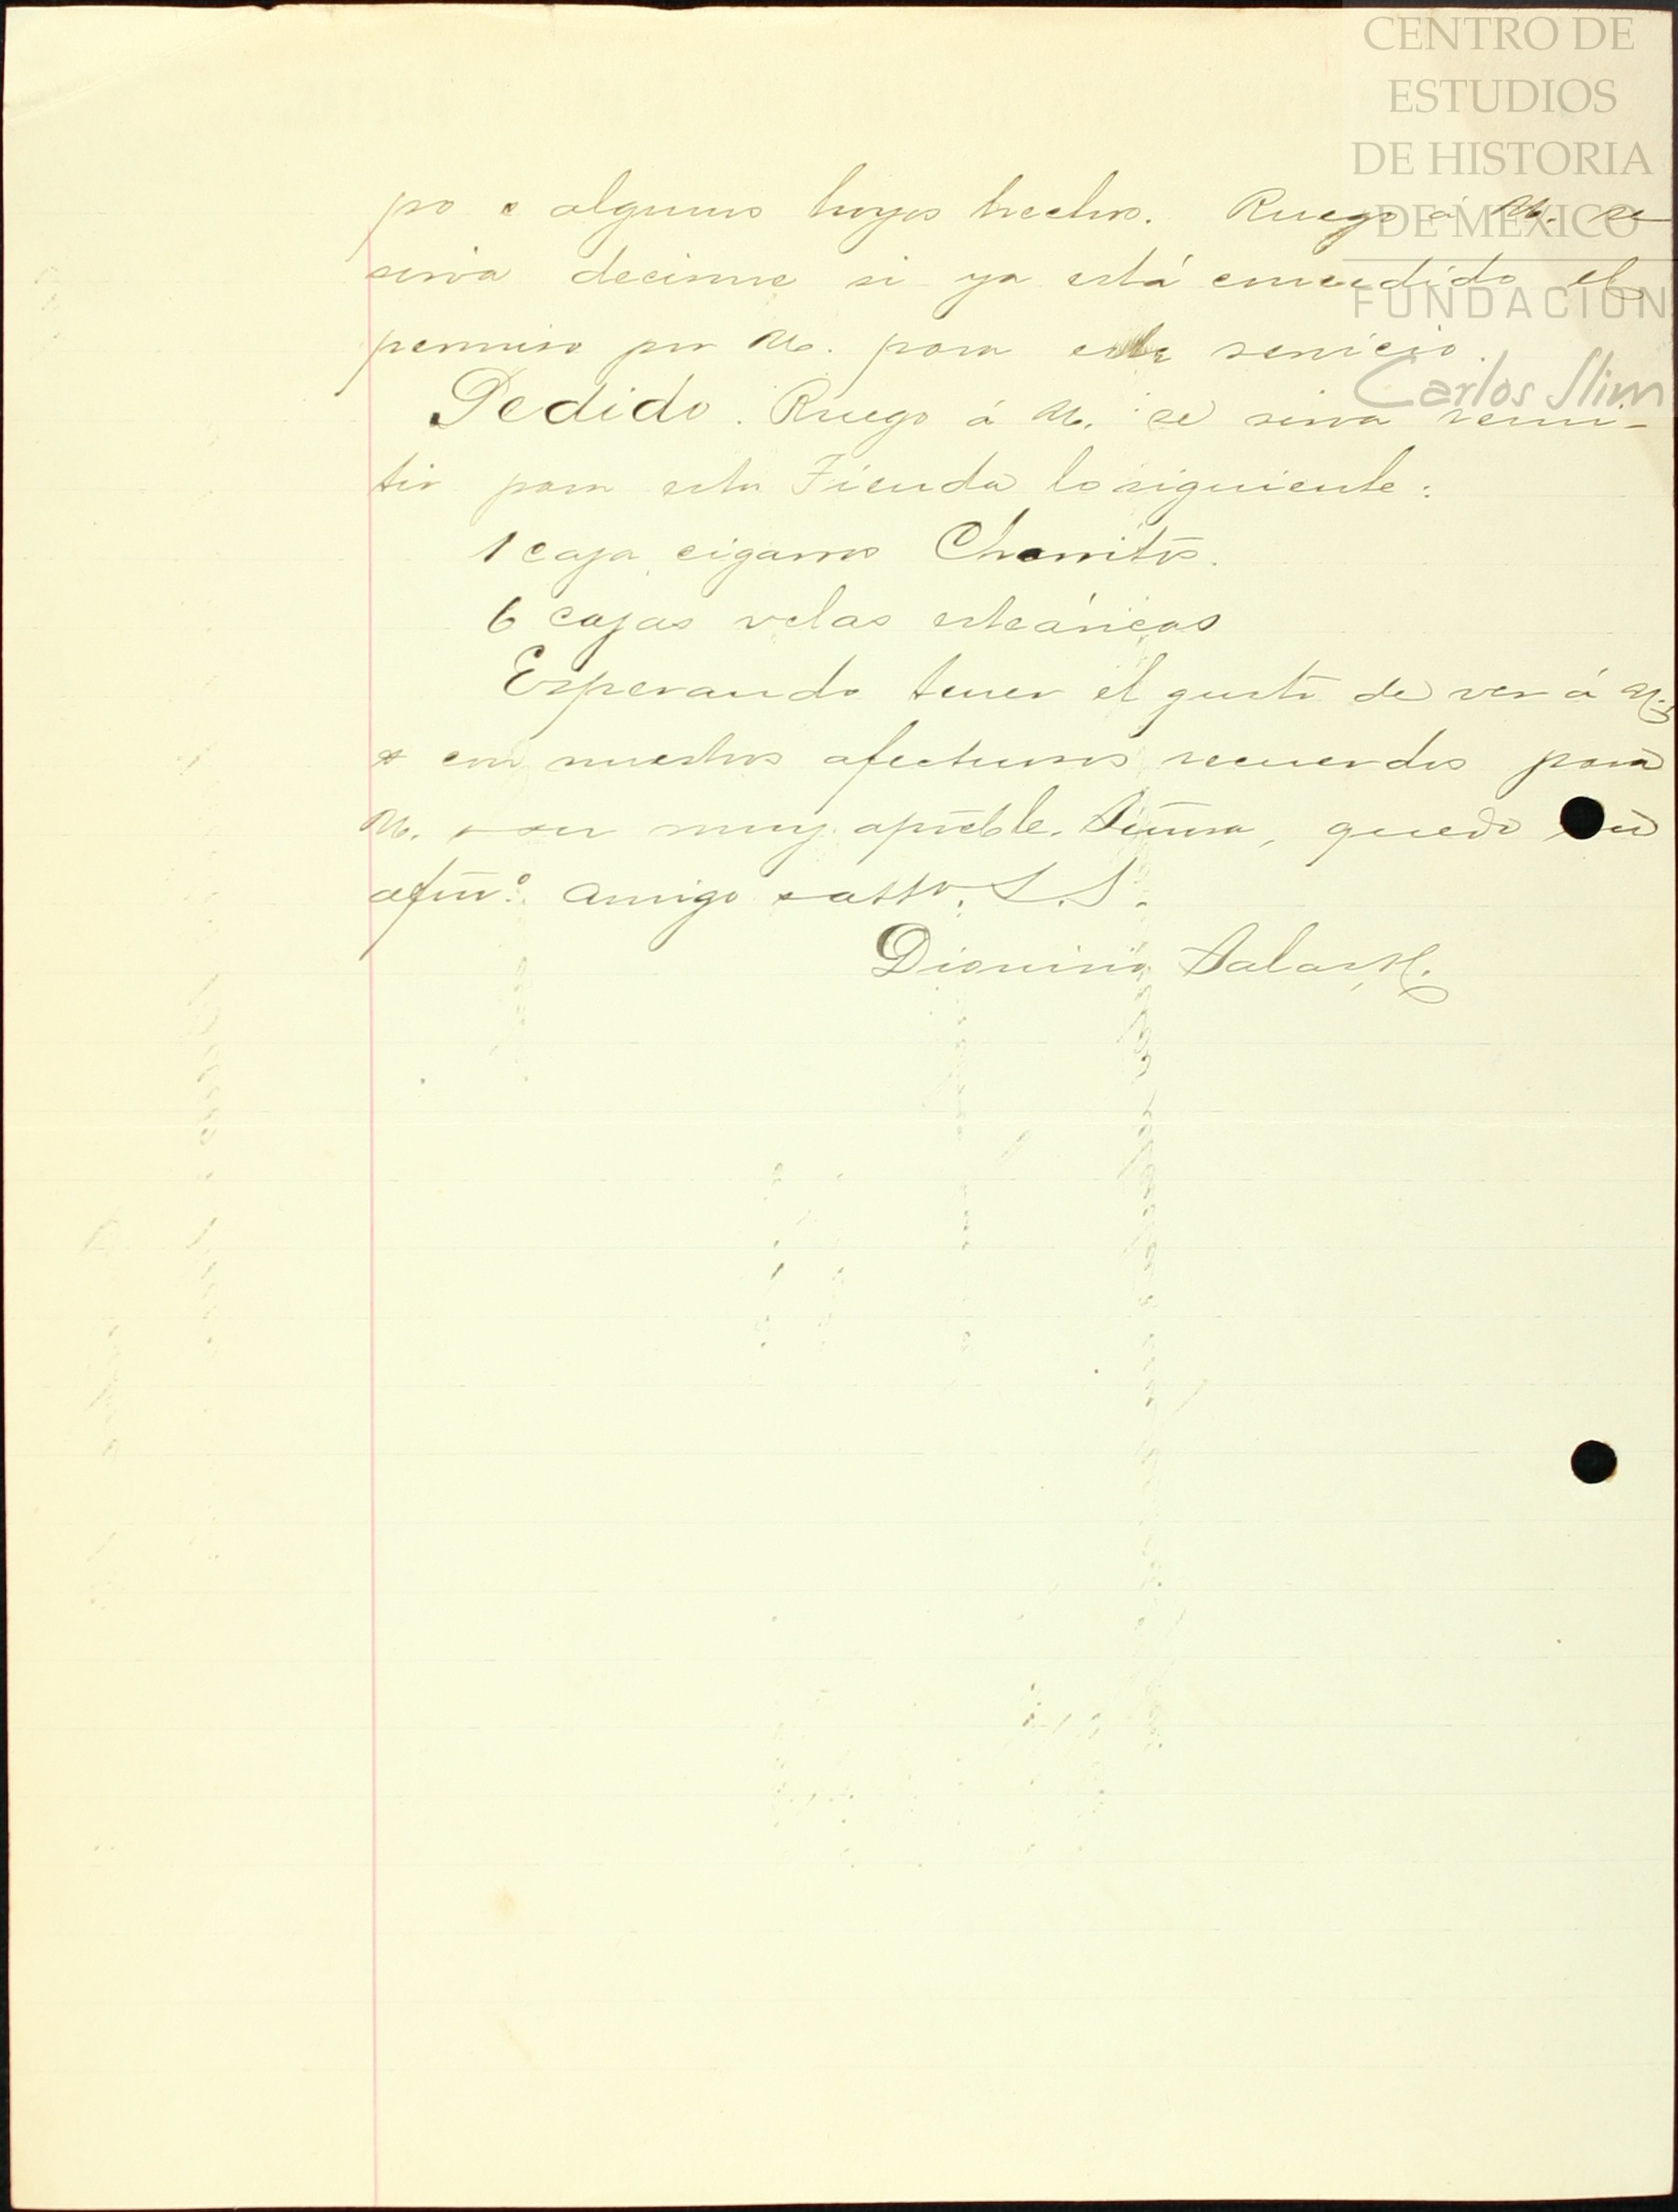 CENTRO DE
ESTUDIOS
DE HISTORIA
DE MEXICO
FUNDACION
Carlos Slim
po e algunos hoyos hechos. Ruego á U. se
sirva decirme si ya está concedido el
permiso por U. para este servicio.
Pedido. Ruego á U. se sirva remi-
tir para esta Tienda lo siguiente:
1 caja cigarros Charritos.
6 cajas velas esteáricas
Esperando tener el gusto de ver á U.
con nuestros afectuosos recuerdos para
U. y su muy apreble. fam̃a, quedo su
afm̃o. amigo y atto. S.S.
Dionisio Salas H.